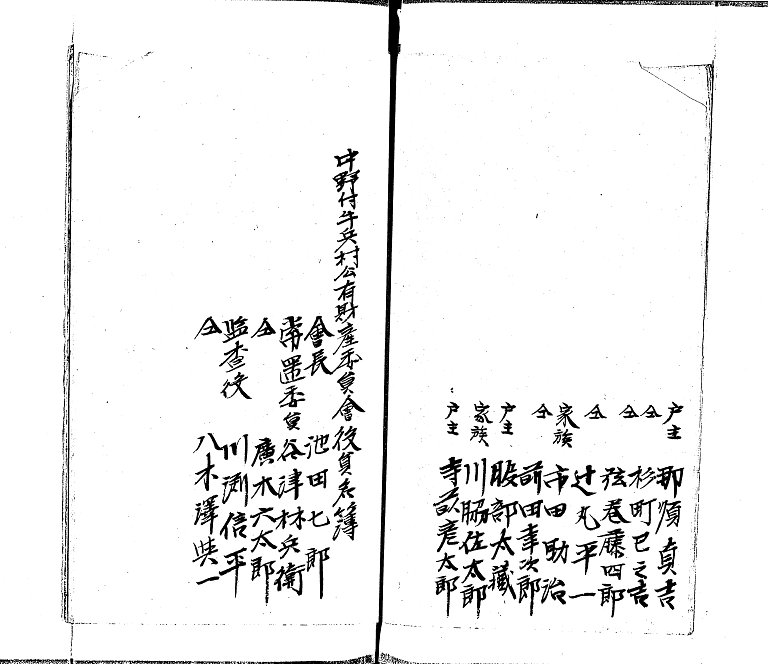 戸主 那須貞吉
仝 杉町巳之吉
仝 弦巻藤四郎
仝 辻丸平一
家族 市田助治
仝 前田幸次郎
戸主 服部太蔵
家族 川脇佐太郎
戸主 寺萩彦太郎
中野付牛兵村公有財産委員會役員名簿
會長 池田七郎
常置委員 谷津林兵衛
仝 廣木六太郎
監査役 川渕信平
仝 八木澤與一